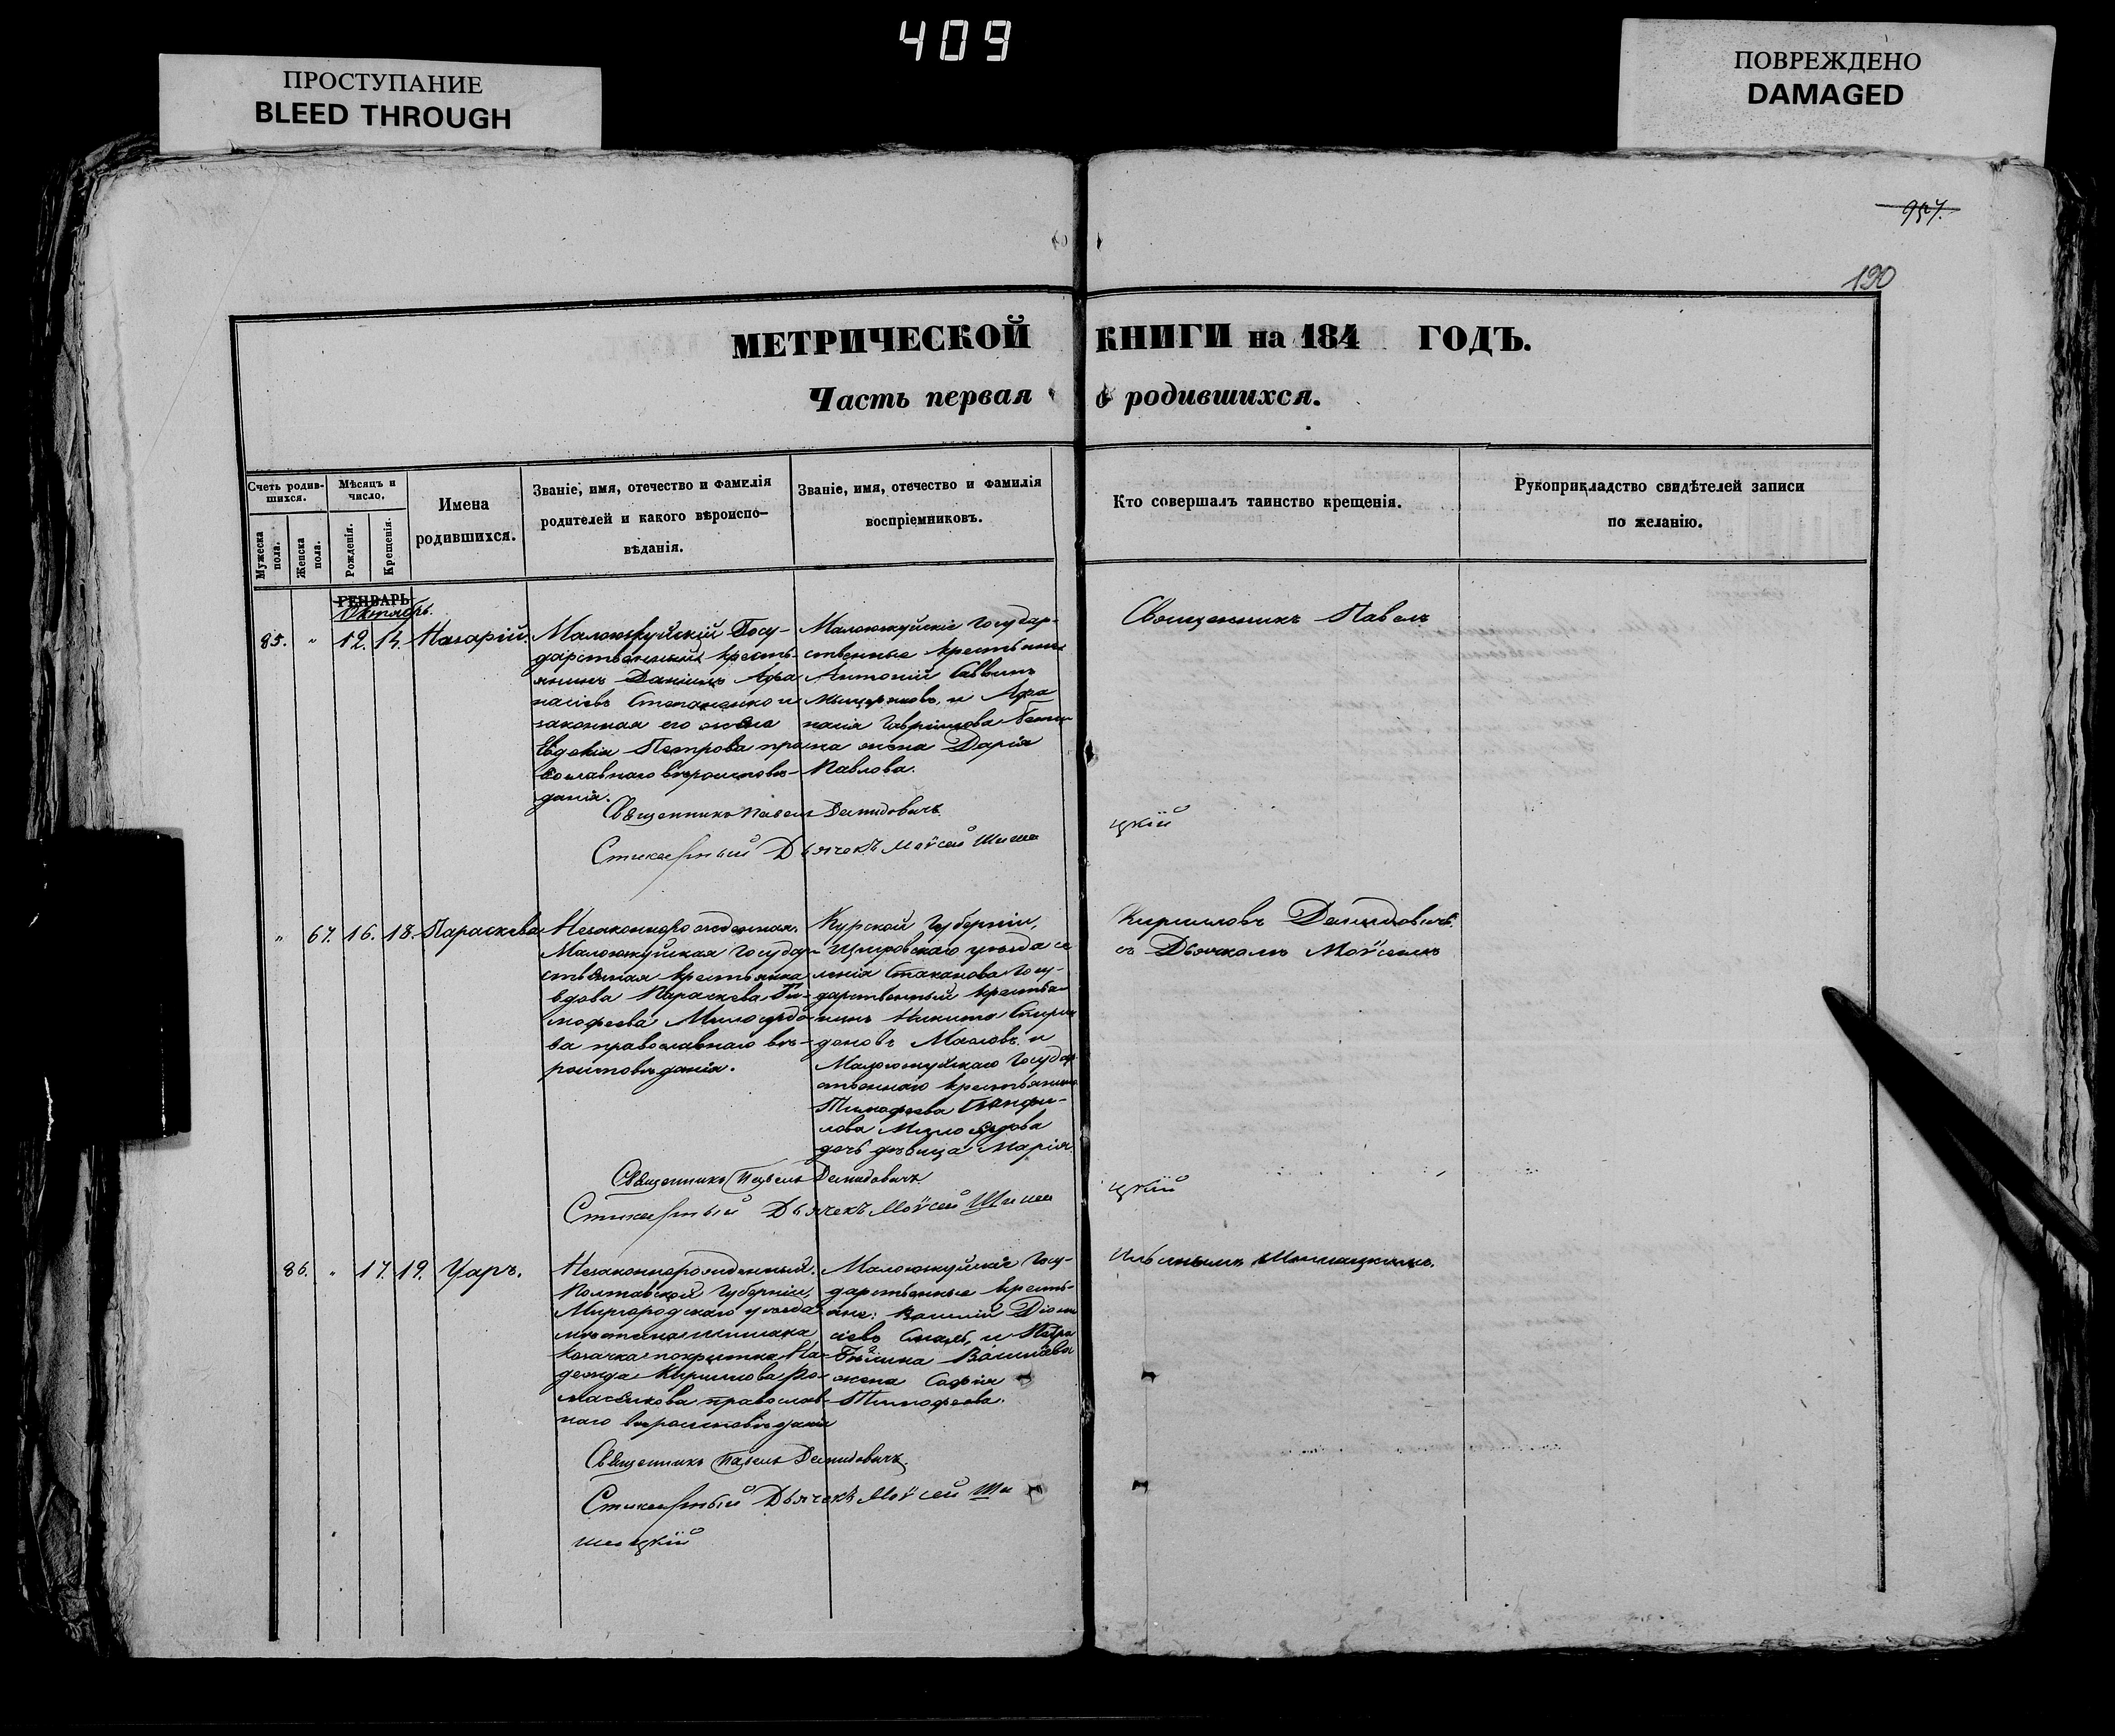 409
ПРОСТУПАНИЕ
BLEED THROUGH
ПОВРЕЖДЕНО
DAMAGED
957.
190
МЕТРИЧЕСКОЙ КНИГИ на 184 ГОДЪ.
Часть первая о родившихся.
Счетъ родив-
шихся.
Мужеска пола.
Женска пола.
Мѣсяцъ и
число.
Рожденія.
Крещенія.
Имена
родившихся.
Званіе, имя, отечество и фамилія
родителей и какого вѣроиспо-
вѣданія.
Званіе, имя, отечество и фамилія
воспріемниковъ.
Кто совершалъ таинство крещенія.
Рукоприкладство свидѣтелей записи
по желанію.
ГЕНВАРЬ
Октябрь.
85. " 12. 13. Назарій.
Малоюжуйскій Госу-
дарственный кресть-
янинъ Даніилъ Афа
насіевъ Степаненко и
законная его жена
Евдокія Петрова пра
вославнаго вѣроисповѣ-
данія.
Малоюжуйскіе Государ-
ственные крестьяне
Антоній Саввинъ
и Афа
насія Гавріилова
на жена Дарія
Павлова.
Священникъ Павелъ
Священникъ Павелъ Демидовичъ
Стихарный Дьячекъ Моѵсей Шише
цкій
" 67. 16. 18. Параскева
Незаконнорожденная.
Малоюжуйская Государ
ственная крестьянка
вдова Параскева Ти-
мофеева Милосердо
ва православнаго вѣ-
роисповѣданія.
Курской Губерніи,
Щигровскаго уѣзда се
ленія Стаканова Госу-
дарственный крестья
нинъ Никита Спири
доновъ Масловъ и
Малоюжуйскаго Государ
ственнаго крестьянина
Тимофеева Панфи-
лова Милосердова
дочь дѣвица Марія
Кириловъ Демидовичъ.
съ Дьячкомъ Моѵсеемъ
Священникъ Павелъ Демидовичъ
Стихарный Дьячекъ Моѵсей Шише
цкій
86. " 17. 19. Уаръ.
Незаконнорожденный.
Полтавской Губерніи,
Миргородскаго уѣзда
мѣстечка Шишака
козачка покрытка На-
дежда Кирилова Ро-
масюкова православ-
наго вѣроисповѣданія
Малоюжуйскіе Госу-
дарственные кресть-
яне: Василій Діони
сіевъ и Петра
Василіева
жена Софія
Тимофеева.
Ильинымъ Шишацкимъ.
Священникъ Павелъ Демидовичъ
Стихарный Дьячекъ Моѵсей Ши
шацкій